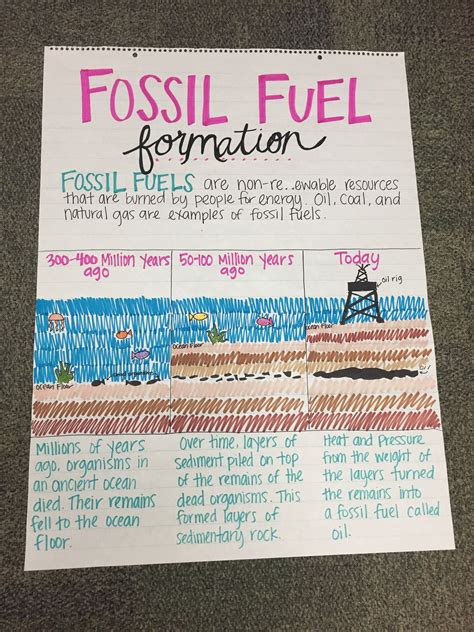 FOSSIL FUEL
formation
FOSSIL FUELS are non-re..ewable resources
that are burned by people for energy. Oil, Coal, and
natural gas are examples of fossil fuels.
300-400 Million Years
ago
Ocean Floor
Millions of years
ago, organisms in
an ancient ocean
died. Their remains
fell to the ocean
floor.
50-100 Million Years
ago
Ocean Floor
Over time, layers of
sediment piled on top
of the remains of the
dead organisms. This
formed layers of
sedimentary rock.
Today
oil rig
Ocean Floor
Oil
Heat and Pressure
from the weight of
the layers turned
the remains into
a fossil fuel called
oil.